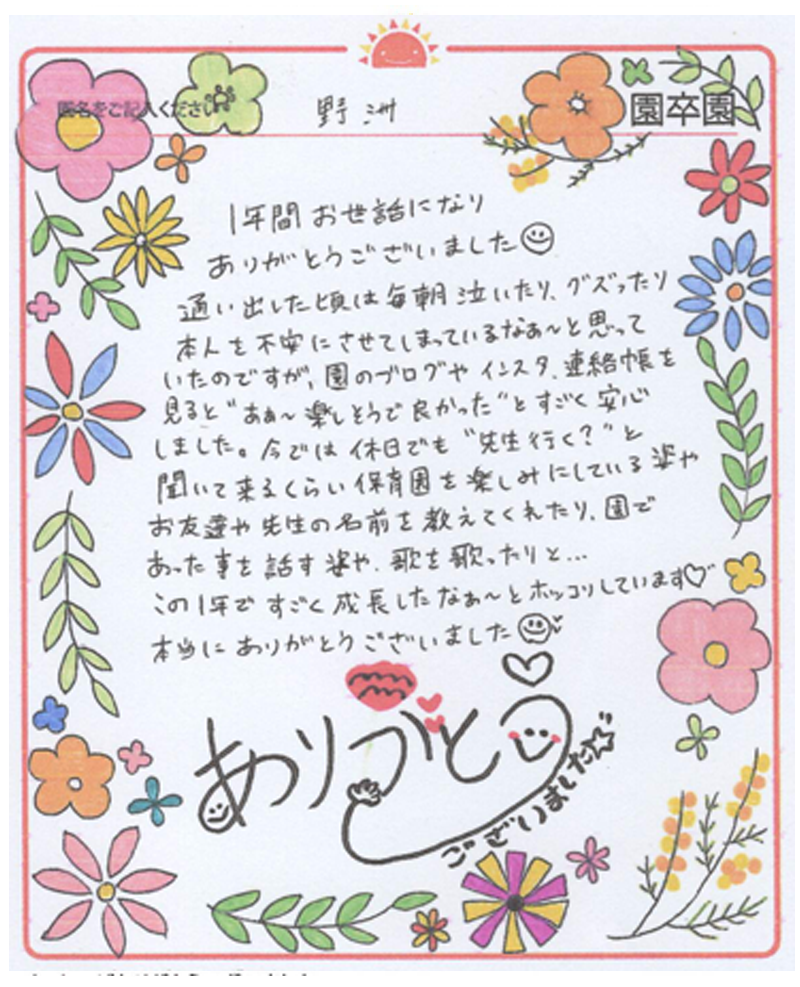 園名をご記入ください
野洲
園卒園
1年間お世話になり
ありがとうございました
通い出した頃は毎朝泣いたり、グズったり
本人を不安にさせてしまっているなぁ〜と思って
いたのですが、園のブログやインスタ、連絡帳を
見ると"あぁ〜楽しそうで良かった"とすごく安心
しました。今では休日でも"先生行く?"と
聞いて来るくらい保育園を楽しみにしている姿や
お友達や先生の名前を教えてくれたり、園で
あった事を話す姿や、歌を歌ったりと...
この1年ですごく成長したなぁ〜とホッコリしています♡
本当にありがとうございました
ありがとう
ございました☆